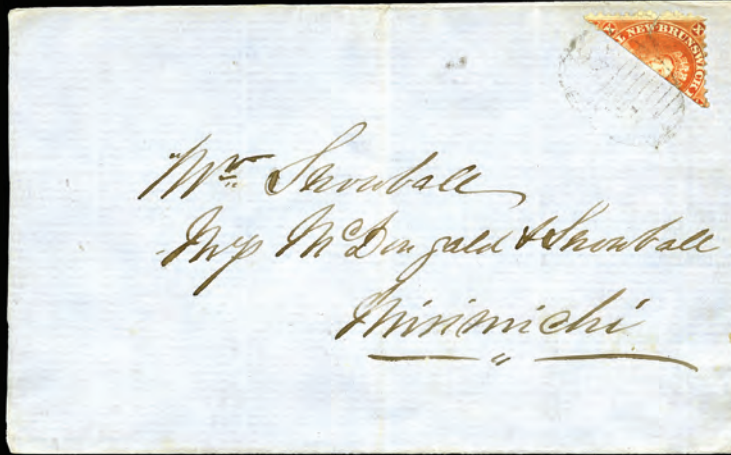 X L NEW BRUNSWICK X
Mr. Snowball
Mssrs McDougald & Snowball
Mirimichi